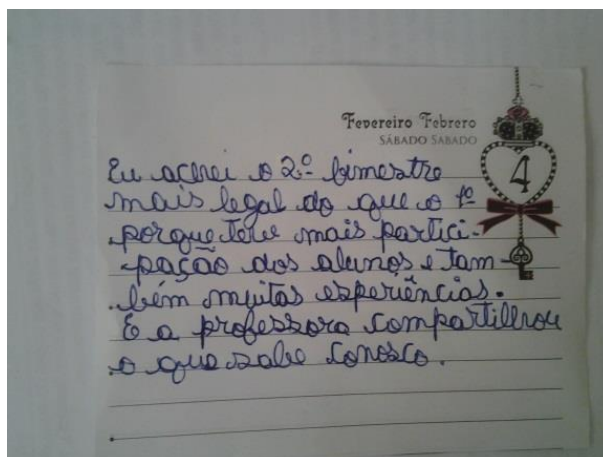 Fevereiro Febrero
SÁBADO SABADO
4
Eu achei o 2º bimestre
mais legal do que o 1º
porque teve mais partici-
-pação dos alunos e tam-
bém muitas experiências.
E a professora compartilhou
o que sabe conosco.